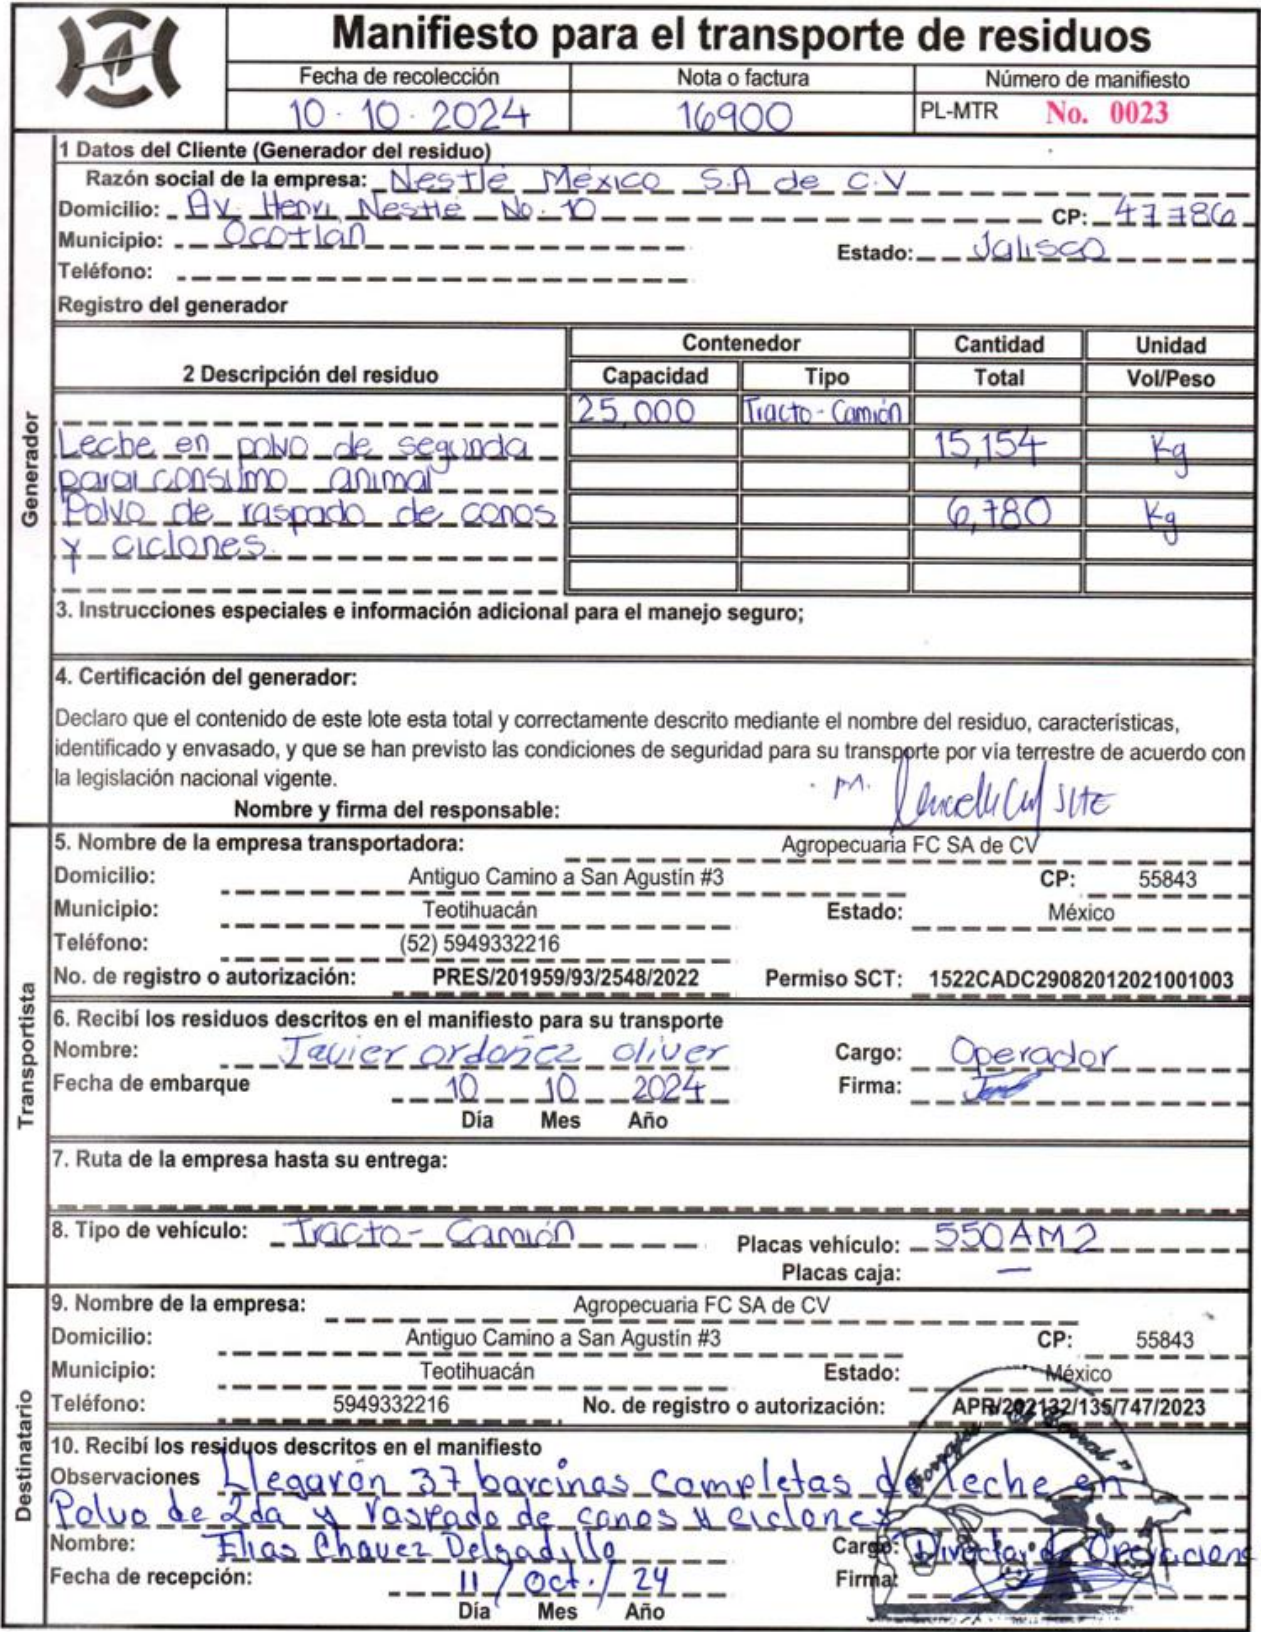 Manifiesto para el transporte de residuos
Fecha de recolección Nota o factura Número de manifiesto
10 · 10 · 2024 16900 PL-MTR No. 0023
1 Datos del Cliente (Generador del residuo)
Razón social de la empresa: Nestlé México S.A de C.V
Domicilio: Av. Henri Nestlé No. 10 CP: 47786
Municipio: Ocotlán Estado: Jalisco
Teléfono:
Registro del generador
Contenedor Cantidad Unidad
2 Descripción del residuo Capacidad Tipo Total Vol/Peso
25,000 Tracto-Camión
Leche en polvo de segunda 15,154 Kg
para consumo animal
Polvo de raspado de conos 6,780 Kg
y ciclones.
3. Instrucciones especiales e información adicional para el manejo seguro;
4. Certificación del generador:
Declaro que el contenido de este lote esta total y correctamente descrito mediante el nombre del residuo, características,
identificado y envasado, y que se han previsto las condiciones de seguridad para su transporte por vía terrestre de acuerdo con
la legislación nacional vigente.
Nombre y firma del responsable:
5. Nombre de la empresa transportadora: Agropecuaria FC SA de CV
Domicilio: Antiguo Camino a San Agustín #3 CP: 55843
Municipio: Teotihuacán Estado: México
Teléfono: (52) 5949332216
No. de registro o autorización: PRES/201959/93/2548/2022 Permiso SCT: 1522CADC29082012021001003
6. Recibí los residuos descritos en el manifiesto para su transporte
Nombre: Javier ordoñez oliver Cargo: Operador
Fecha de embarque 10 10 2024 Firma:
Día Mes Año
7. Ruta de la empresa hasta su entrega:
8. Tipo de vehículo: Tracto-Camión Placas vehículo: 550AM2
Placas caja: —
9. Nombre de la empresa: Agropecuaria FC SA de CV
Domicilio: Antiguo Camino a San Agustín #3 CP: 55843
Municipio: Teotihuacán Estado: México
Teléfono: 5949332216 No. de registro o autorización: APR/202132/135/747/2023
10. Recibí los residuos descritos en el manifiesto
Observaciones Llegarón 37 barcinas completas de leche en
Polvo de 2da y raspado de conos y ciclones
Nombre: Elias Chavez Delgadillo Cargo: Director de Operacione
Fecha de recepción: 11 / Oct. / 24 Firma:
Día Mes Año
Generador
Transportista
Destinatario